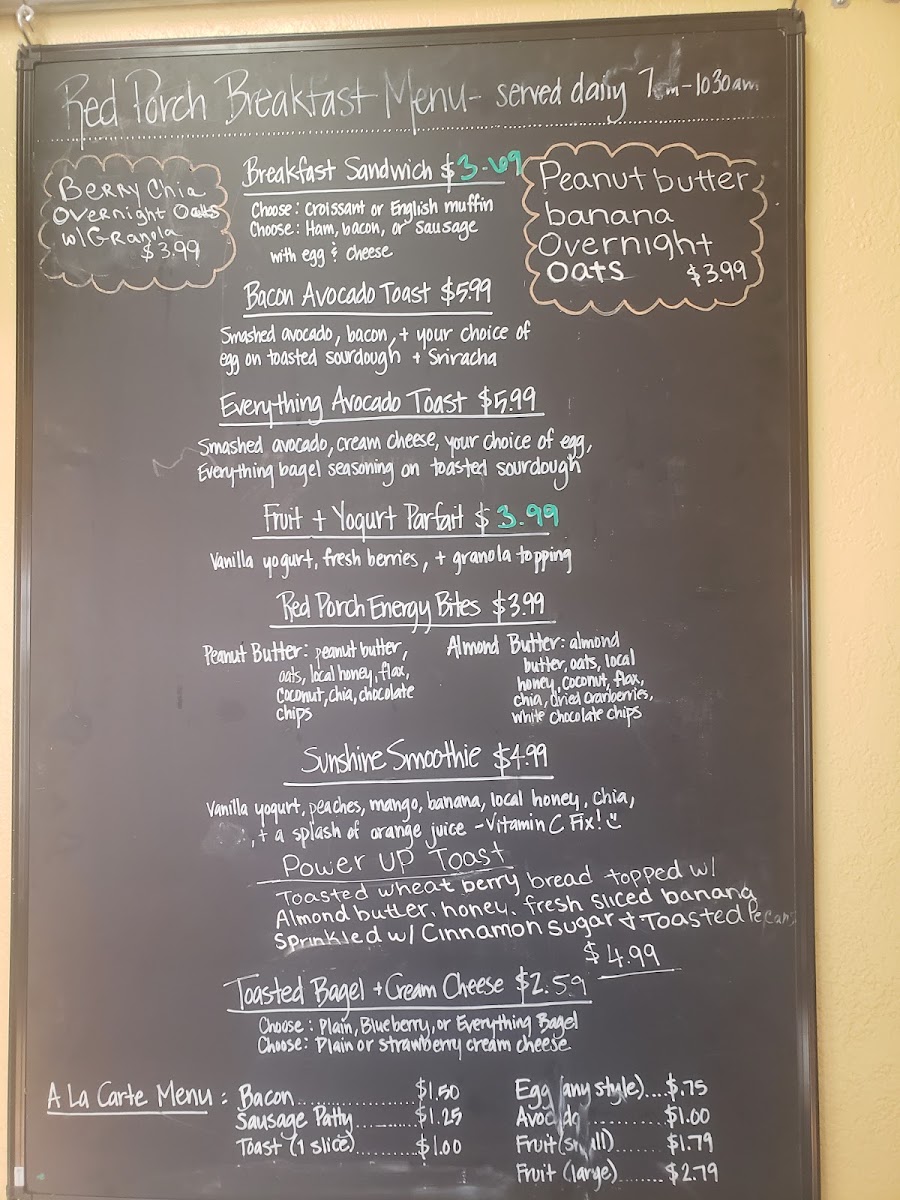 Red Porch Breakfast Menu - served daily 7am-10:30am
Berry Chia
Overnight Oats
w/Granola
$3.99
Breakfast Sandwich $3.69
Choose: Croissant or English muffin
Choose: Ham, bacon, or sausage
with egg & cheese
Peanut butter
banana
Overnight
Oats $3.99
Bacon Avocado Toast $5.99
Smashed avocado, bacon, + your choice of
egg on toasted sourdough + Sriracha
Everything Avocado Toast $5.99
Smashed avocado, cream cheese, your choice of egg,
Everything bagel seasoning on toasted sourdough
Fruit + Yogurt Parfait $3.99
Vanilla yogurt, fresh berries, + granola topping
Red Porch Energy Bites $3.99
Peanut Butter: peanut butter,
oats, local honey, flax,
coconut, chia, chocolate
chips
Almond Butter: almond
butter, oats, local
honey, coconut, flax,
chia, dried cranberries,
white chocolate chips
Sunshine Smoothie $4.99
Vanilla yogurt, peaches, mango, banana, local honey, chia,
, + a splash of orange juice - Vitamin C Fix!
Power UP Toast
Toasted wheat berry bread topped w/
Almond butter, honey, fresh sliced banana
Sprinkled w/ Cinnamon sugar & Toasted Pecans
$4.99
Toasted Bagel + Cream Cheese $2.59
Choose: Plain, Blueberry, or Everything Bagel
Choose: Plain or strawberry cream cheese
A La Carte Menu: Bacon.................$1.50
Sausage Patty..........$1.25
Toast (1 slice)..........$1.00
Egg (any style)....$.75
Avocado..........$1.00
Fruit (small)......$1.79
Fruit (large).......$2.79